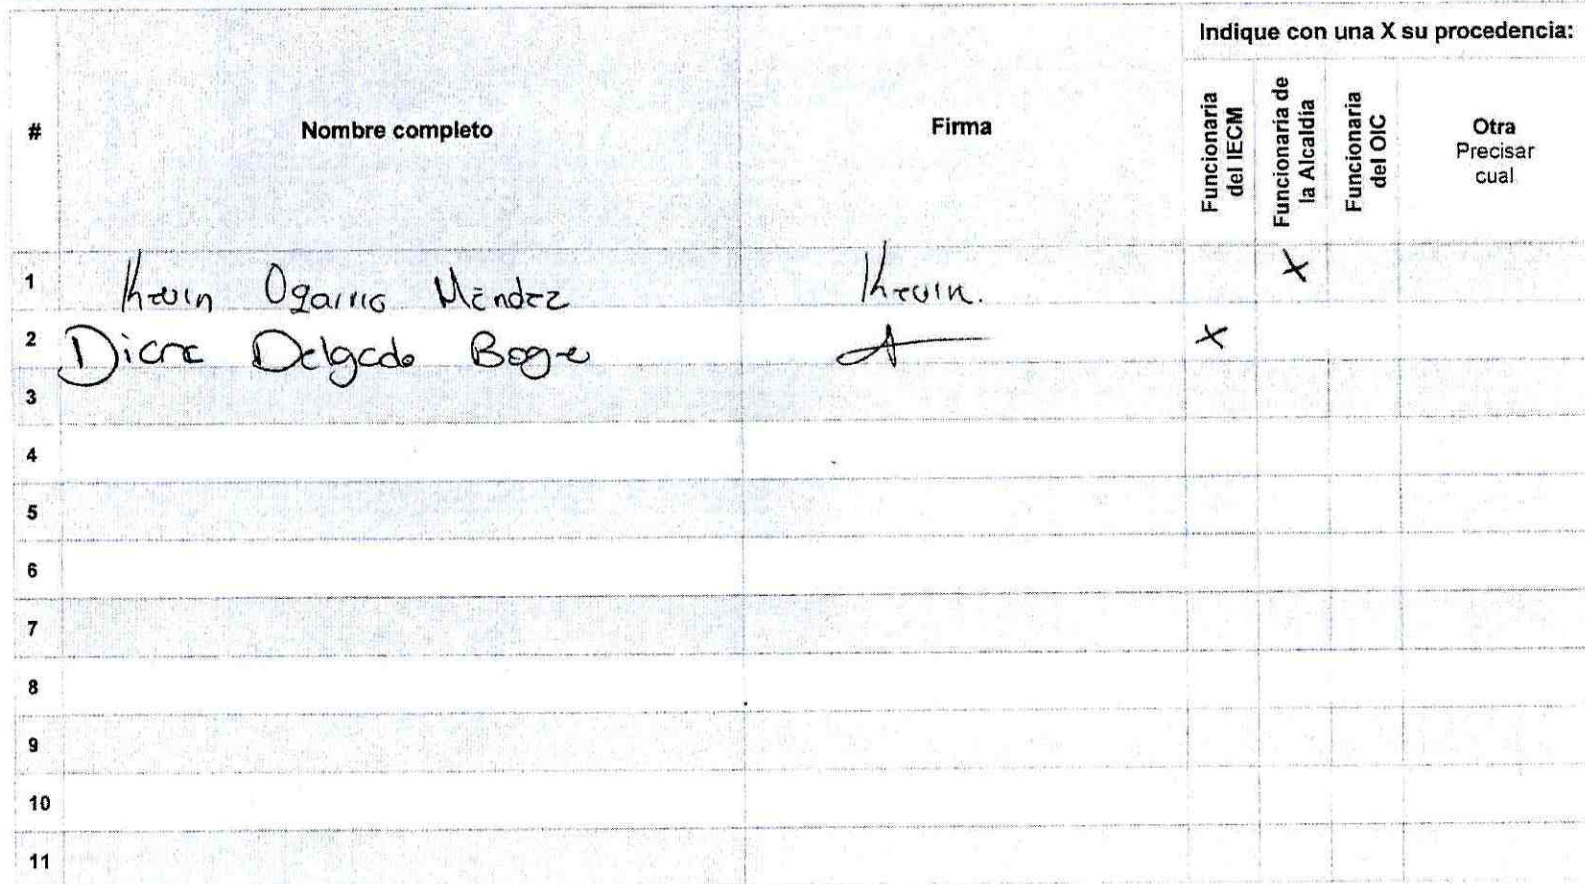 Indique con una X su procedencia:
# Nombre completo Firma Funcionaria del IECM Funcionaria de la Alcaldía Funcionaria del OIC Otra Precisar cual
1 Kevin Ogarrio Méndez Kevin. X
2 Diana Delgado X
3
4
5
6
7
8
9
10
11